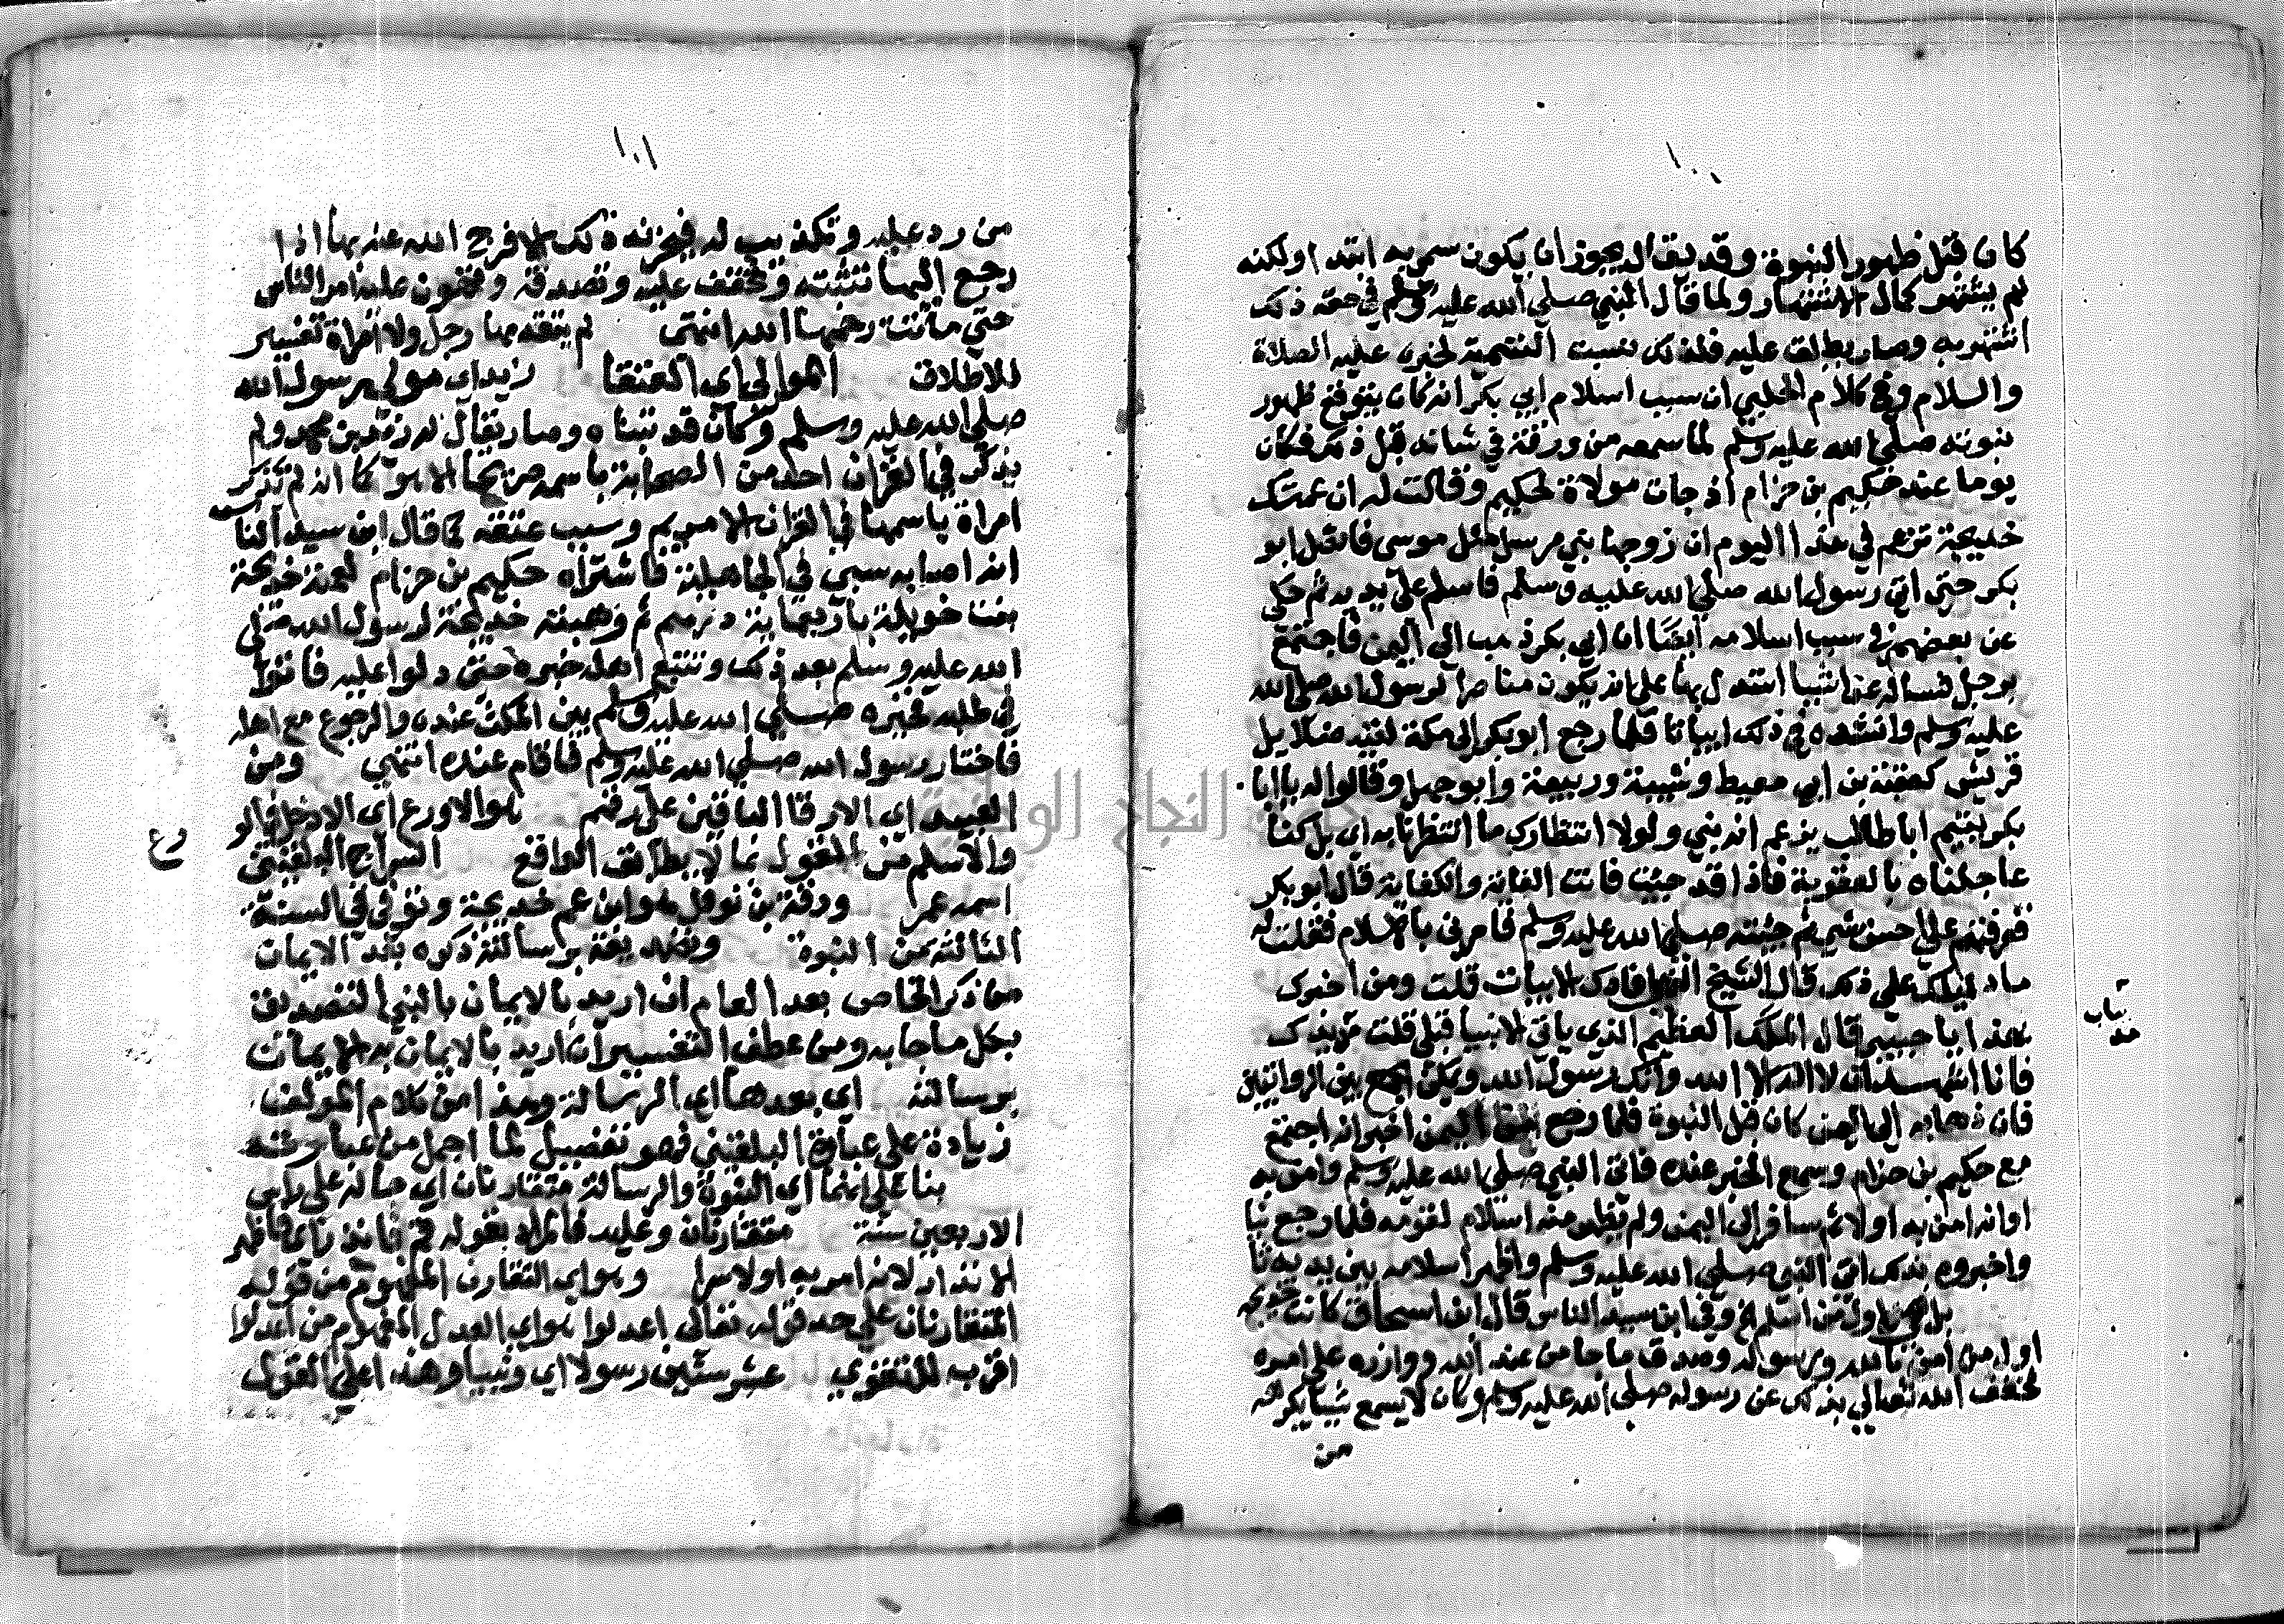 ١٠٠
كان قبل ظهور النبوة وقد يقال يجوز ان يكون سمى به ابتدا ولكنه
لم يشتهر كمال الاشتهار ولما قال النبي صلي الله عليه وسلم في حقه ذلك
اشتهر به وصار يطلق عليه فلذلك نسبت التسمية لخبره عليه الصلاة
والسلام وفي كلام الحلبي ان سبب اسلام ابي بكر انه كان يتوقع ظهور
نبوته صلي الله عليه وسلم لما سمعه من ورقة في شانه قبل ذلك فكان
يوما عند حكيم بن حزام اذ جات مولاة لحكيم وقالت له ان عمتك
خديجة تزعم في هذا اليوم ان زوجها نبي مرسل مثل موسى فانسل ابو
بكر حتى اتي رسول الله صلي الله عليه وسلم فاسلم على يديه ثم حكي
عن بعضهم في سبب اسلامه ايضا ان ابي بكر ذهب الي اليمن فاجتمع
برجل فساله عن اشيا استدل بها على انه يكون مناصرا لرسول الله صلى الله
عليه وسلم وانشده في ذلك ابياتا فلما رجع ابو بكر الى مكة لقيه صناديد
قريش كعقبة بن ابي معيط وشيبة وربيعة وابو جهل وقالوا له يا ابا
بكر يتيم ابا طالب يزعم انه نبي ولولا انتظارك ما انتظرنا به اي بل كنا
عاجلناه بالعقوبة فاذا قد جيت فانت الغاية والكفاية قال ابو بكر
فصرفتهم علي احسن شي ثم جيته صلي الله عليه وسلم فامرني بالاسلام فقلت له
ما دليلك علي ذلك قال الشيخ الذي افادك الابيات قلت ومن اخبرك
بهذا يا حبيبي قال الملك العظيم الذي ياتي الانبيا قبلي قلت مد يدك
فانا اشهد ان لا اله الا الله وانك رسول الله ويمكن الجمع بين الروايتين
فان ذهابه الى اليمن كان قبل النبوة فلما رجع من اليمن اخبر انه اجتمع
مع حكيم بن حزام وسمع الخبر عنده فاتى النبي صلي الله عليه وسلم وامن به
او انه امن به اولا ثم سافر الى اليمن ولم يظهر منه اسلام لقومه فلما رجع
واخبروه بذلك اتى النبي صلي الله عليه وسلم واظهر اسلامه بين يديه ثانيا
بل هي اول من اسلم الخ وفي ابن سيد الناس قال ابن اسحاق كانت خديجة
اول من امن بالله وبرسوله وصدق ما جا من عند الله ووازره على امره
فخفف الله تعالي بذلك عن رسوله صلى الله عليه وسلم وكان لا يسمع شيا يكرهه
من
١٠١
من رد عليه وتكذيب له فيحزنه ذلك الا فرج الله عنه بها اذا
رجع اليها تثبته وتخفف عليه وتصدقه وتهون عليه امر الناس
حتى ماتت رحمها الله انتهى لم يتقدمها رجل ولا امراة تفسير
للاطلاق اهوالي اي العتقا زيد اي مولى رسول الله
صلي الله عليه وسلم وكان قد تبناه وصار يقال له زيد بن محمد ولم
يذكر في القران احد من الصحابة باسمه صريحا الا هو كما انه لم تذكر
امراة باسمها في القران الا مريم وسبب عتقه كما قال ابن سيد الناس
انه اصابه سبي في الجاهلية فاشتراه حكيم بن حزام لعمته خديجة
بنت خويلد باربعماية درهم ثم وهبته خديجة لرسول الله صلى
الله عليه وسلم بعد ذلك وتتبع اهله خبره حتى دلوا عليه فاتوا
في طلبه فخيره صلي الله عليه وسلم بين المكث عنده والرجوع مع اهله
فاختار رسول الله صلي الله عليه وسلم فاقام عنده انتهي ومن
العبيد اي الارقا الباقين على رقهم هو الاورع اي الادخل في الورع
والاسلم من القول بما لا يطابق الواقع السراج البلقيني
اسمه عمر ورقة بن نوفل هو ابن عم خديجة وتوفي في السنة
الثالثة من النبوة وتصديقه برسالته ذكره بعد الايمان
من ذكر الخاص بعد العام ان اريد بالايمان بالنبي التصديق
بكل ما جا به ومن عطف التفسير ان اريد بالايمان به الايمان
برسالته اي بعدها اي الرسالة وهذا من كلام المولف
زيادة على عبارة البلقيني فهو تفصيل لما اجمل من عبارته
بنا على انها اي النبوة والرسالة متقارنان اي حالة على راس
الاربعين سنة متقارنان وعليه فالمراد بقوله قم فانذر اي فاظهر
الانذار لانه امر به اولا سرا وهو اي التقارن المفهوم من قوله
المتقارنان علي حد قوله تعالى اعدلوا هو اي العدل المفهوم من اعدلوا
اقرب للتقوي عشر سنين رسولا اي ونبيا وهذا علي القول